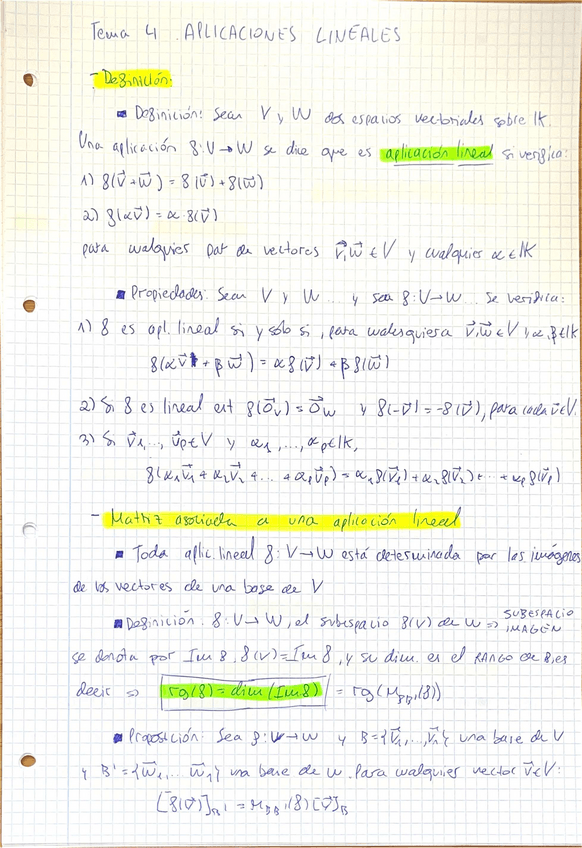 Tema 4. APLICACIONES LINEALES
- Definición:
▪ Definición: Sean V y W dos espacios vectoriales sobre lK.
Una aplicación f: V → W se dice que es aplicación lineal si verifica:
1) f(v⃗ + w⃗) = f(v⃗) + f(w⃗)
2) f(αv⃗) = α f(v⃗)
para cualquier par de vectores v⃗, w⃗ ∈ V y cualquier α ∈ lK
▪ Propiedades: Sean V y W ... y sea f: V → W ... Se verifica:
1) f es apl. lineal si y sólo si, para cualesquiera v⃗, w⃗ ∈ V y α, β ∈ lK
f(αv⃗ + βw⃗) = αf(v⃗) + βf(w⃗)
2) Si f es lineal ent f(0⃗v) = 0⃗w y f(-v⃗) = -f(v⃗), para cada v⃗ ∈ V.
3) Si v⃗1, ..., v⃗p ∈ V y α1, ..., αp ∈ lK,
f(α1v⃗1 + α2v⃗2 + ... + αpv⃗p) = α1f(v⃗1) + α2f(v⃗2) + ... + αpf(v⃗p)
- Matriz asociada a una aplicación lineal
▪ Toda aplic. lineal f: V → W está determinada por las imágenes
de los vectores de una base de V
▪ Definición: f: V → W, el subespacio f(V) de W ⇒ SUBESPACIO IMAGEN
se denota por Im f, f(V) = Im f, y su dim. es el RANGO de f, es
decir ⇒ rg(f) = dim(Im f) = rg(M_BB'(f))
▪ Proposición: Sea f: V → W y B = {v⃗1, ..., v⃗1} una base de V
y B' = {w⃗1, ... w⃗1} una base de W. Para cualquier vector v⃗ ∈ V:
[f(v⃗)]_B' = M_BB'(f) [v⃗]_B